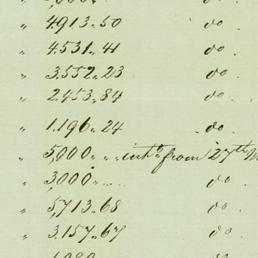 " 4913.50 do.
" 4531.41 do.
" 3.552.23 do.
" 2453.84 do.
" 1.196.24 do.
" 5,000 " " int. from 27th
" 3000 .... do.
" 5,713.68 do.
" 3.157.67 do.